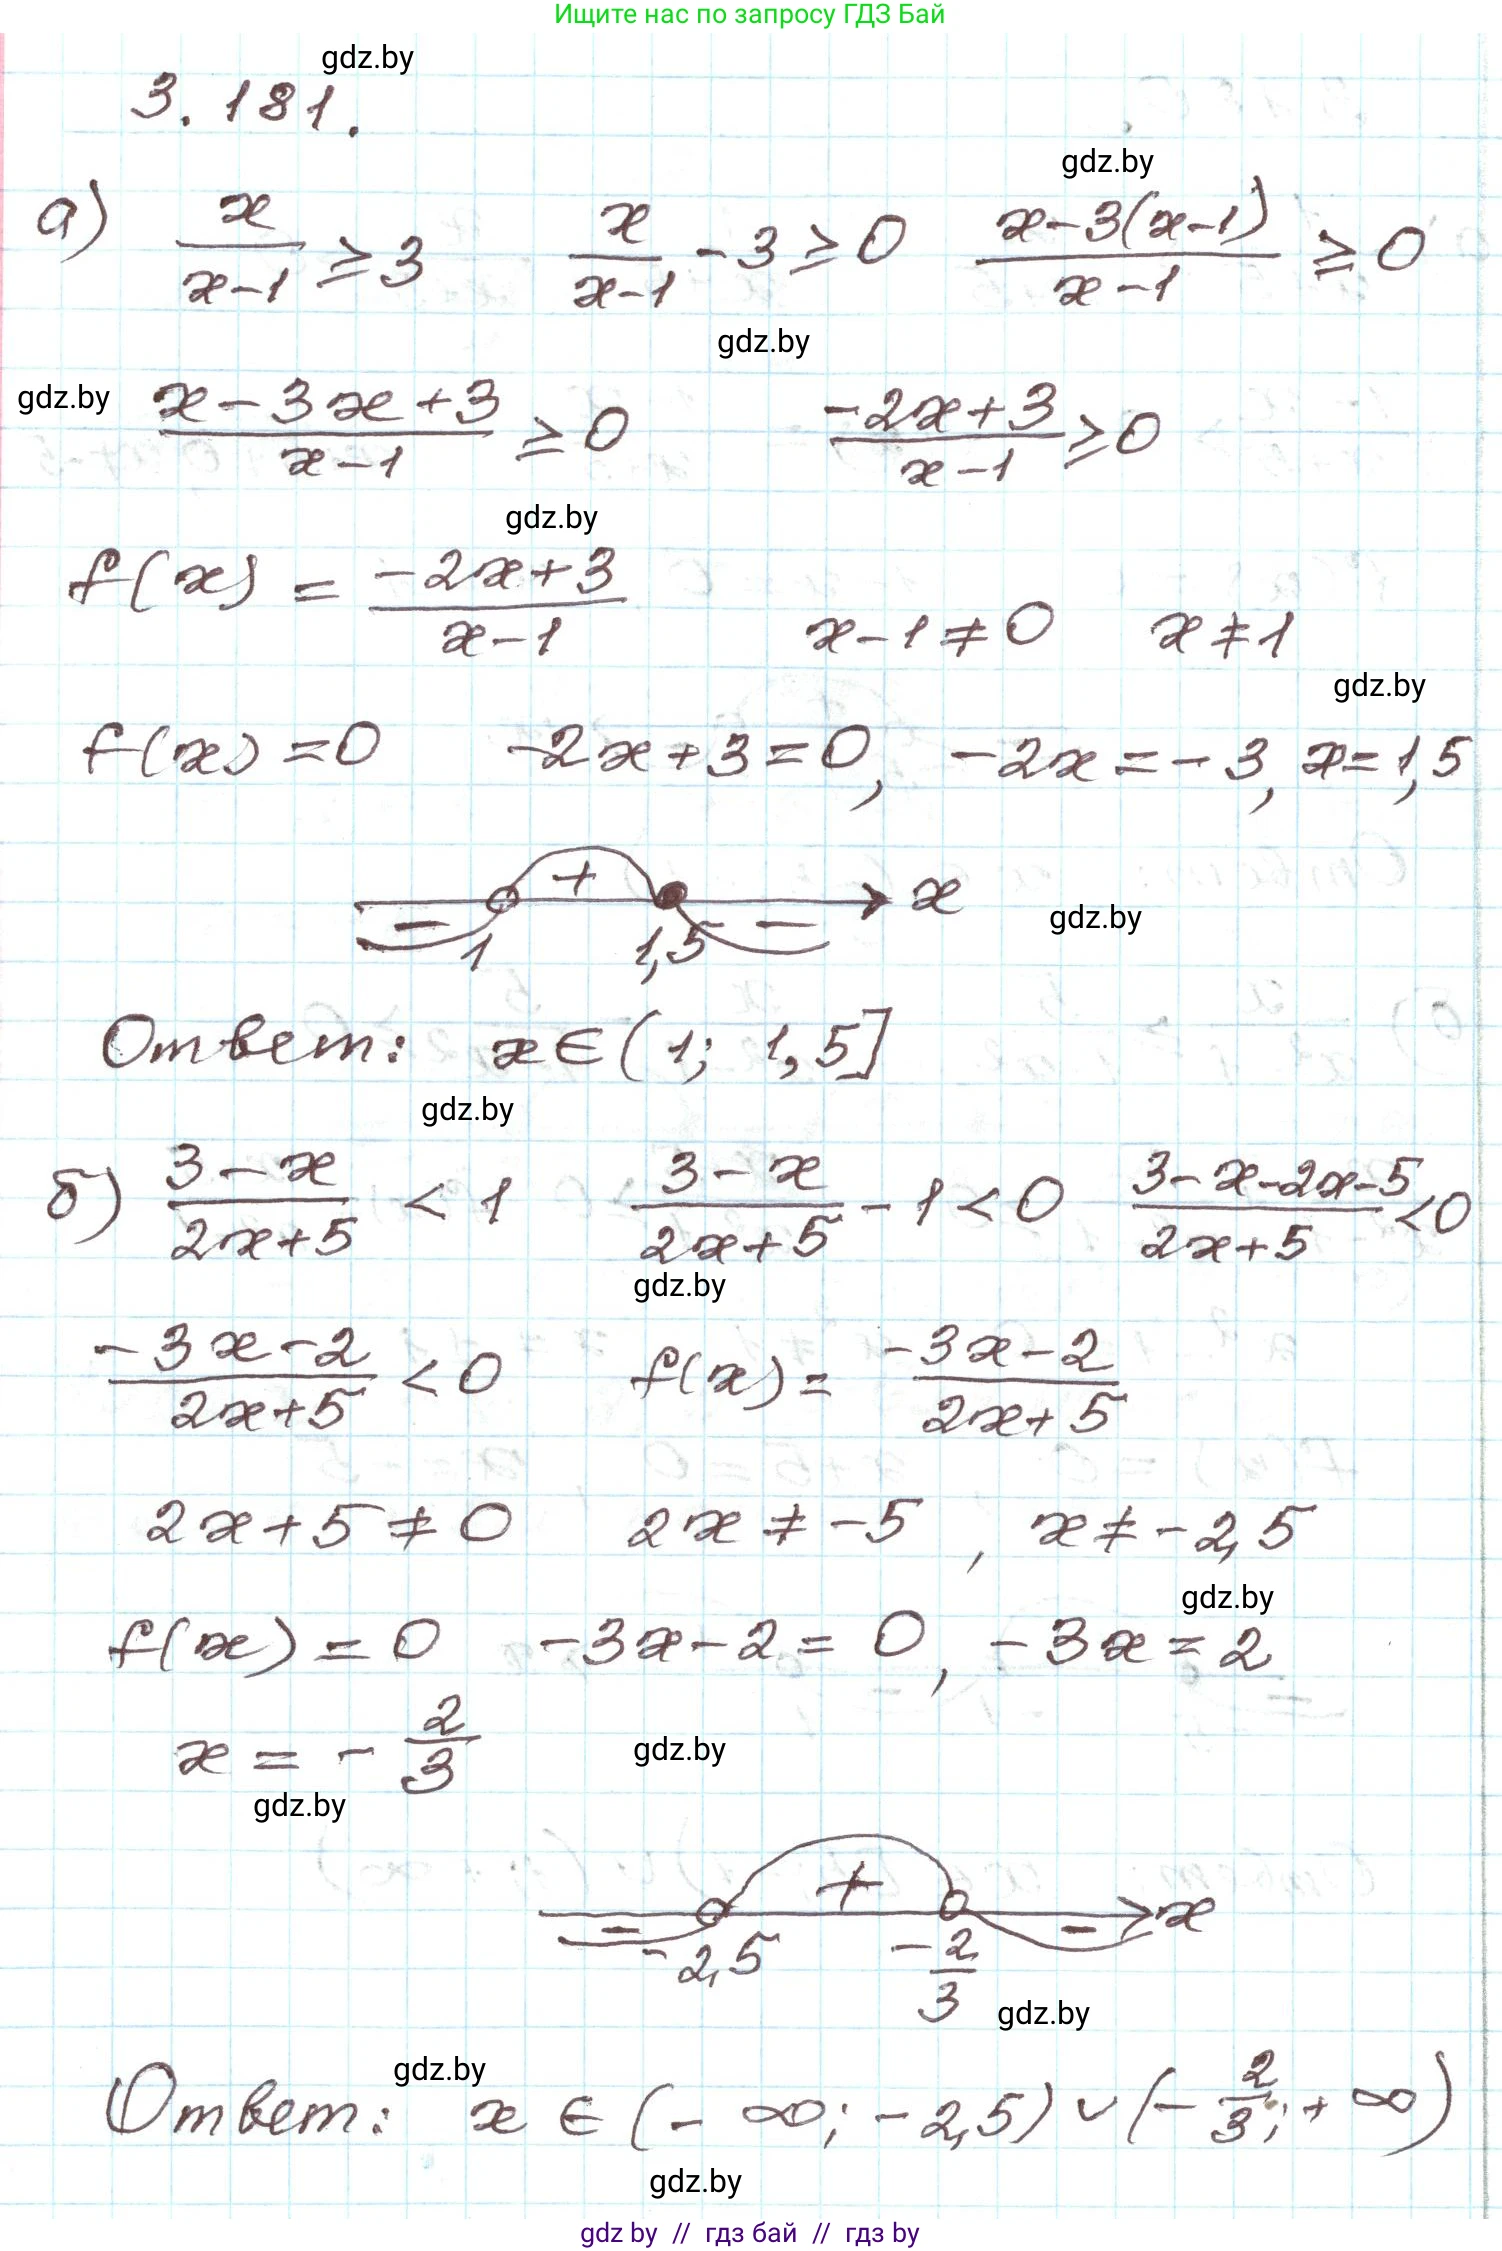 Ищите нас по запросу ГДЗ Бай
gdz.by
3.181.
gdz.by
а) x/(x-1) ≥ 3   x/(x-1) - 3 ≥ 0   (x-3(x-1))/(x-1) ≥ 0
gdz.by
gdz.by
(x-3x+3)/(x-1) ≥ 0   (-2x+3)/(x-1) ≥ 0
gdz.by
f(x) = (-2x+3)/(x-1)   x-1≠0   x≠1
gdz.by
f(x)=0   -2x+3=0, -2x=-3, x=1,5
- + - x
gdz.by
1 1,5
Ответ: x∈(1; 1,5]
gdz.by
б) (3-x)/(2x+5) < 1   (3-x)/(2x+5) - 1 < 0   (3-x-2x-5)/(2x+5) < 0
gdz.by
(-3x-2)/(2x+5) < 0   f(x) = (-3x-2)/(2x+5)
2x+5≠0   2x≠-5, x≠-2,5
gdz.by
f(x)=0   -3x-2=0, -3x=2
x = -2/3
gdz.by
gdz.by
- + - x
-2,5 -2/3
gdz.by
gdz.by
Ответ: x∈(-∞; -2,5)∪(-2/3; +∞)
gdz.by
gdz by // гдз бай // гдз by